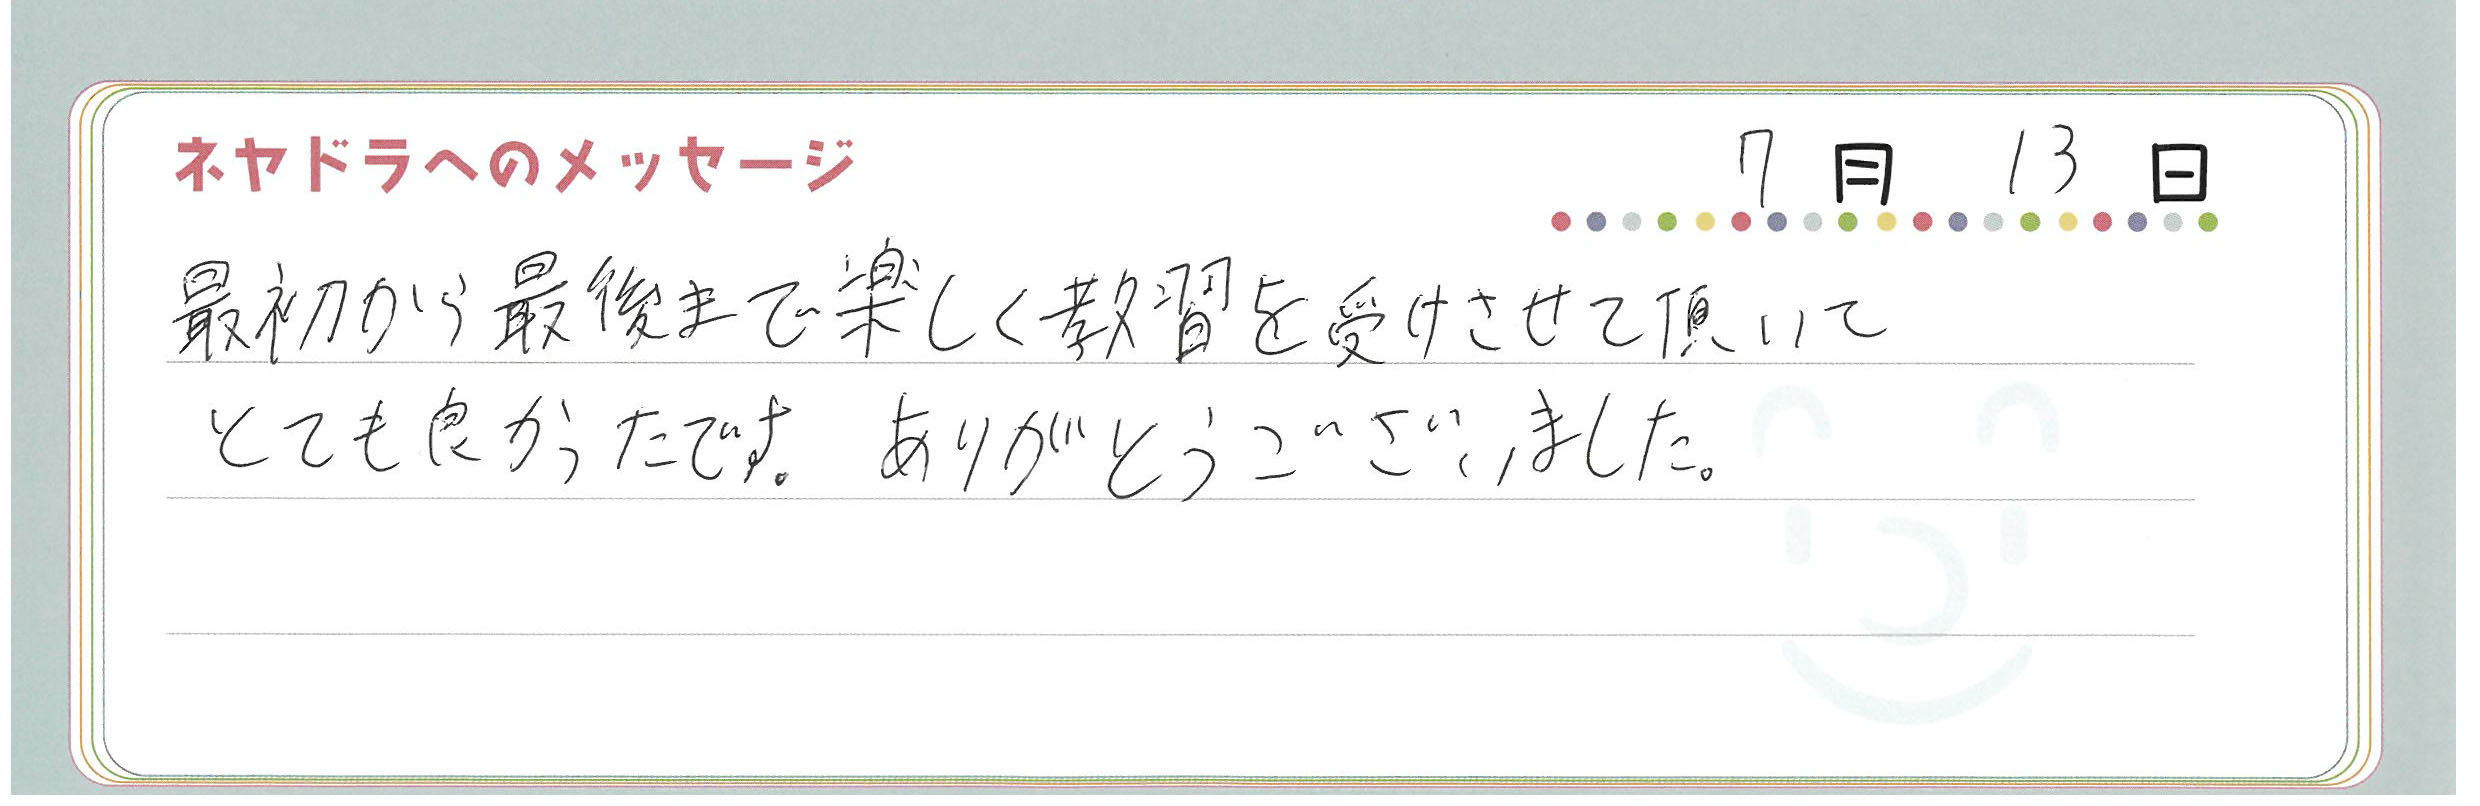 ネヤドラへのメッセージ 7月 13日
最初から最後まで楽しく教習を受けさせて頂いて
とても良かったです。ありがとうございました。